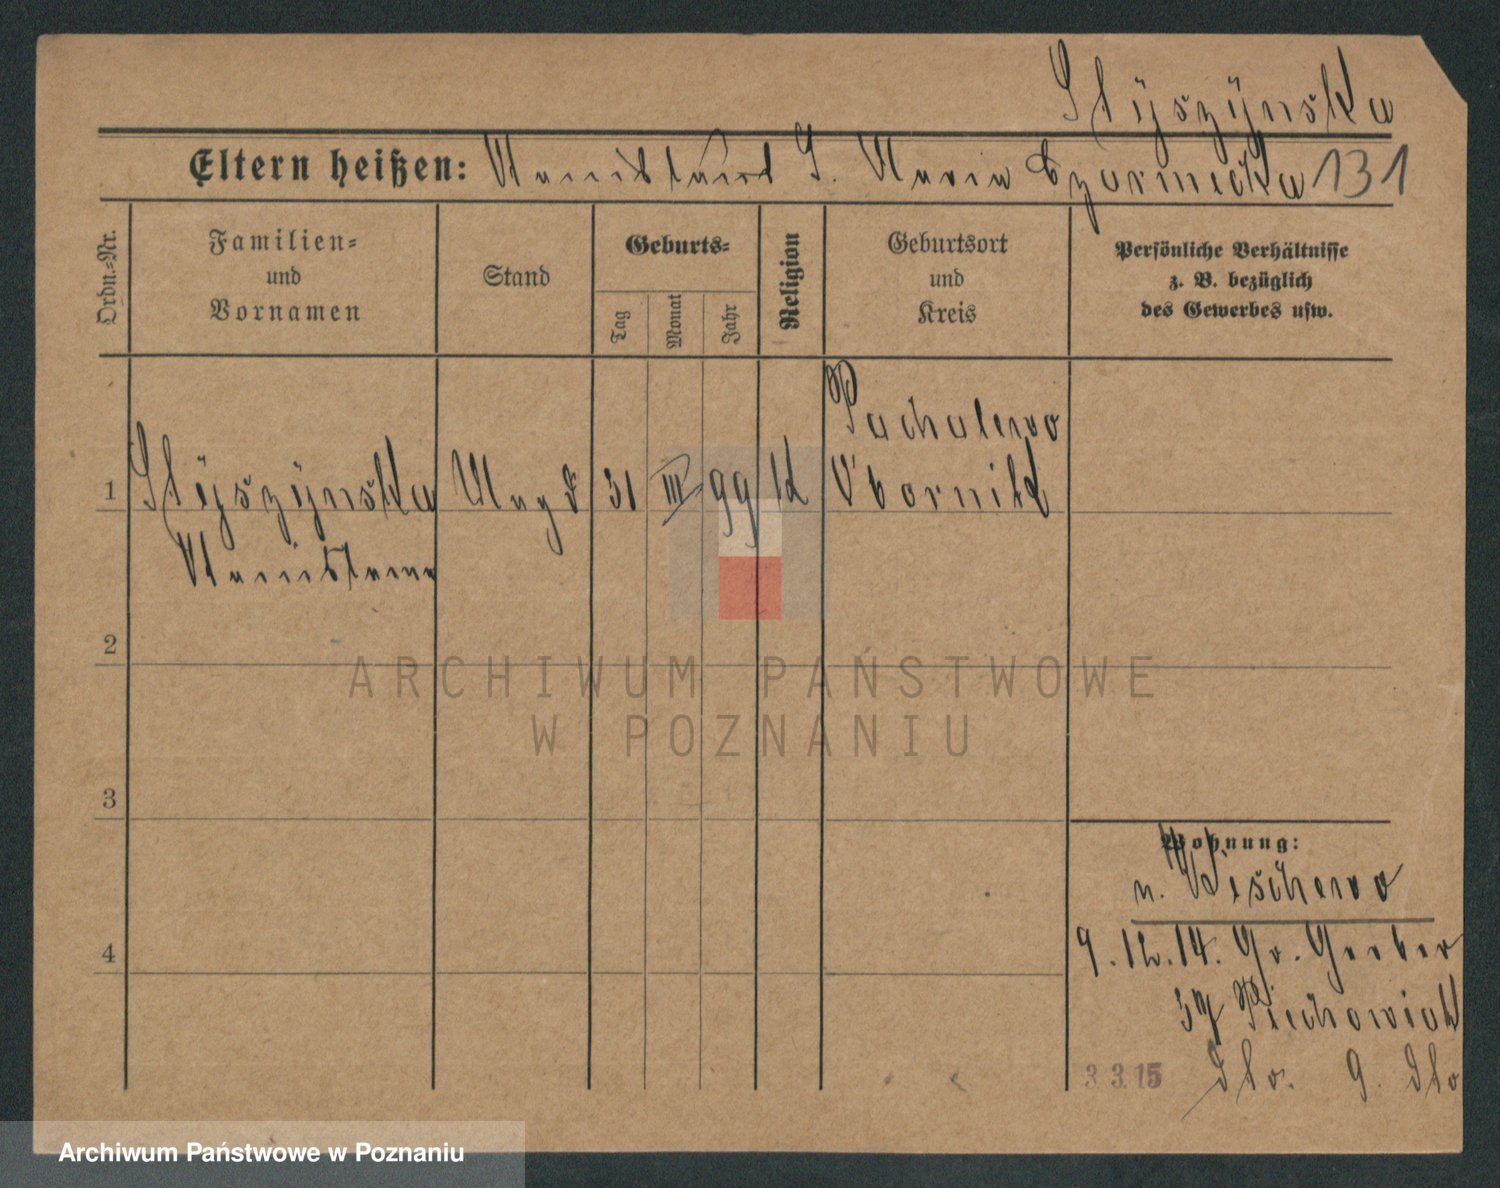 Slyszynska
Eltern heißen: Stanislaus S. Maria Czarnecka 131
Ordn.-Nr.
Familien-
und
Vornamen
Stand
Geburts-
Tag
Monat
Jahr
Religion
Geburtsort
und
Kreis
Persönliche Verhältnisse
z. B. bezüglich
des Gewerbes usw.
1
Slyszynska
Magd
31
III
99
k
Obornik
2
3
4
Wohnung:
n. Wischewo
9.12.14. Gr. Gerber
37
3.3.15
ARCHIWUM PAŃSTWOWE
W POZNANIU
Archiwum Państwowe w Poznaniu